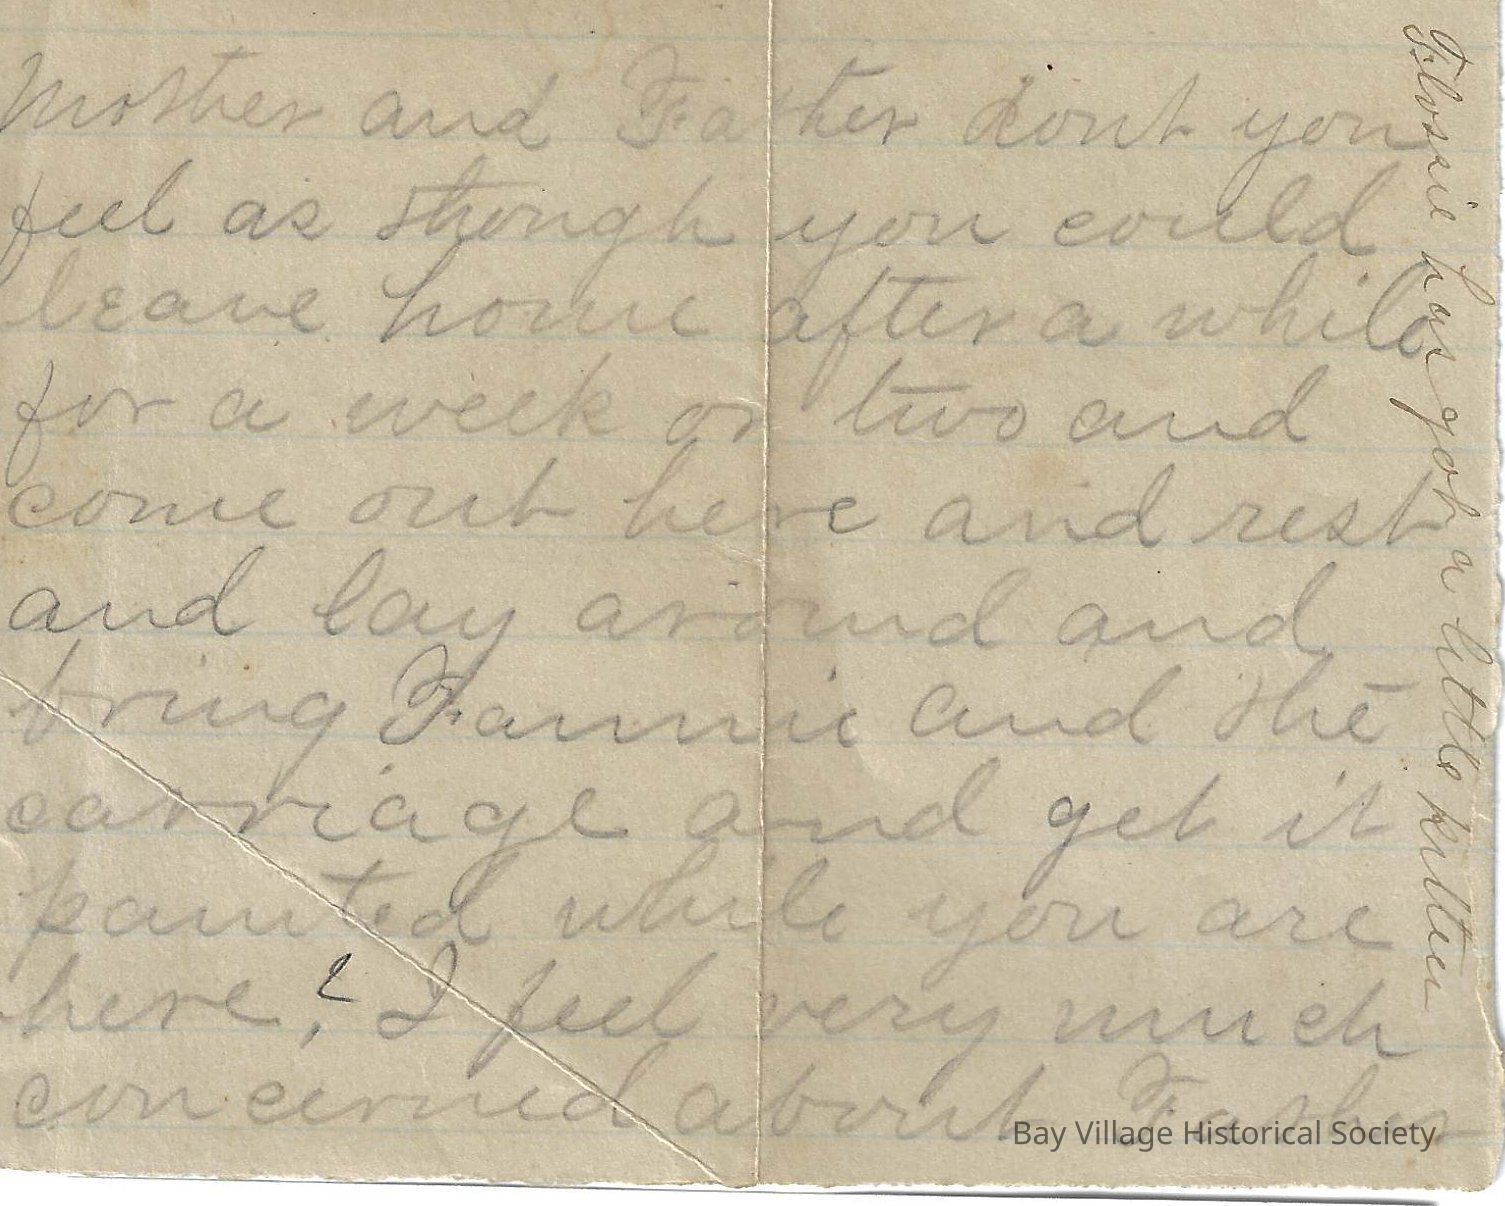 Mother and Father dont you
feel as though you could
leave home after a while
for a week or two and
come out here and rest
and lay around and
bring Fannie and the
carriage and get it
painted while you are
here,? I feel very much
concerned about Father
Flossie has got a little kitten
Bay Village Historical Society